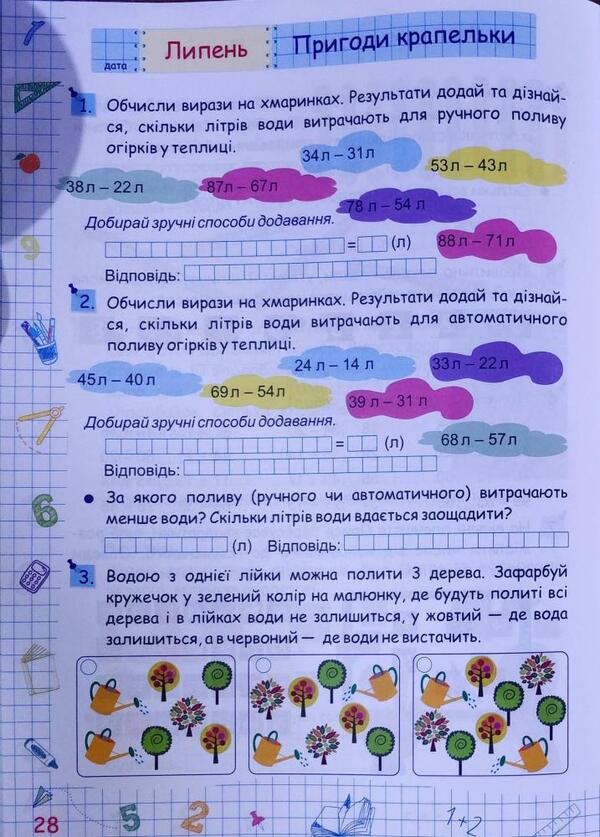 дата
Липень
Пригоди крапельки
1. Обчисли вирази на хмаринках. Результати додай та дізнай-
ся, скільки літрів води витрачають для ручного поливу
огірків у теплиці.
34 л – 31 л
53 л – 43 л
38 л – 22 л
87 л – 67 л
78 л – 54 л
Добирай зручні способи додавання.
= (л)
88 л – 71 л
Відповідь:
2. Обчисли вирази на хмаринках. Результати додай та дізнай-
ся, скільки літрів води витрачають для автоматичного
поливу огірків у теплиці.
24 л – 14 л
33 л – 22 л
45 л – 40 л
69 л – 54 л
39 л – 31 л
Добирай зручні способи додавання.
= (л)
68 л – 57 л
Відповідь:
• За якого поливу (ручного чи автоматичного) витрачають
менше води? Скільки літрів води вдається заощадити?
(л) Відповідь:
3. Водою з однієї лійки можна полити 3 дерева. Зафарбуй
кружечок у зелений колір на малюнку, де будуть политі всі
дерева і в лійках води не залишиться, у жовтий — де вода
залишиться, а в червоний — де води не вистачить.
28
1
9
6
5
2
1+2